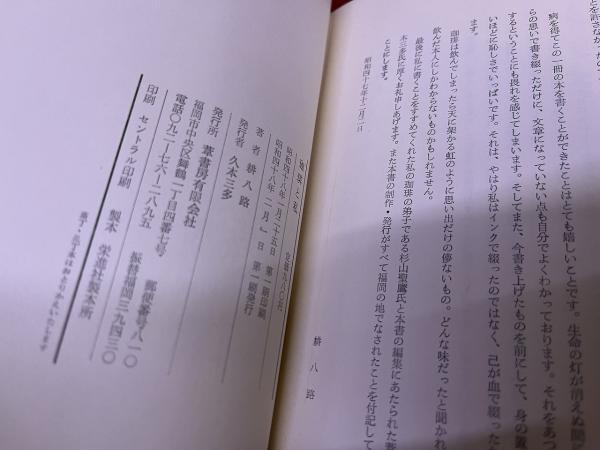 とを許さなかった
病を得てこの一冊の本を書くことができたことはとても嬉しいことです。生命の灯が消えぬ間に
らの思いで書き綴っただけに、文章になっていない点も自分でよくわかっております。それをあつ
するということにも畏れを感じてしまいます。そしてまた、今書き上げたものを前にして、身の置
いほどに恥しさでいっぱいです。それは、やはり私はインクで綴ったのではなく、己が血で綴った
ます。
珈琲は飲んでしまったら天に架かる虹のように思い出だけの儚ないもの。どんな味だったと聞かれ
飲んだ本人にしかわからないものかもしれません。
最後に私に書くことをすすめてくれた私の珈琲の弟子である杉山聖鷹氏と本書の編集にあたられた
木三多氏に厚くお礼申しあげます。また本書の制作・発行がすべて福岡の地でなされたことを付記して
ことにします。
昭和四十七年十二月二日
耕八路
珈琲と私
定価九八〇円
昭和四十八年一月二十五日 第一刷印刷
昭和四十八年二月 一日 第一刷発行
著者 耕八路
発行者 久本三多
発行所 葦書房有限会社
福岡市中央区舞鶴一丁目四番七号
電話〇九二—七六一—二八九五
郵便番号八一〇
振替福岡三九四三〇
印刷 セントラル印刷 製本 栄進社製本所
落丁・乱丁本はおとりかえいたします